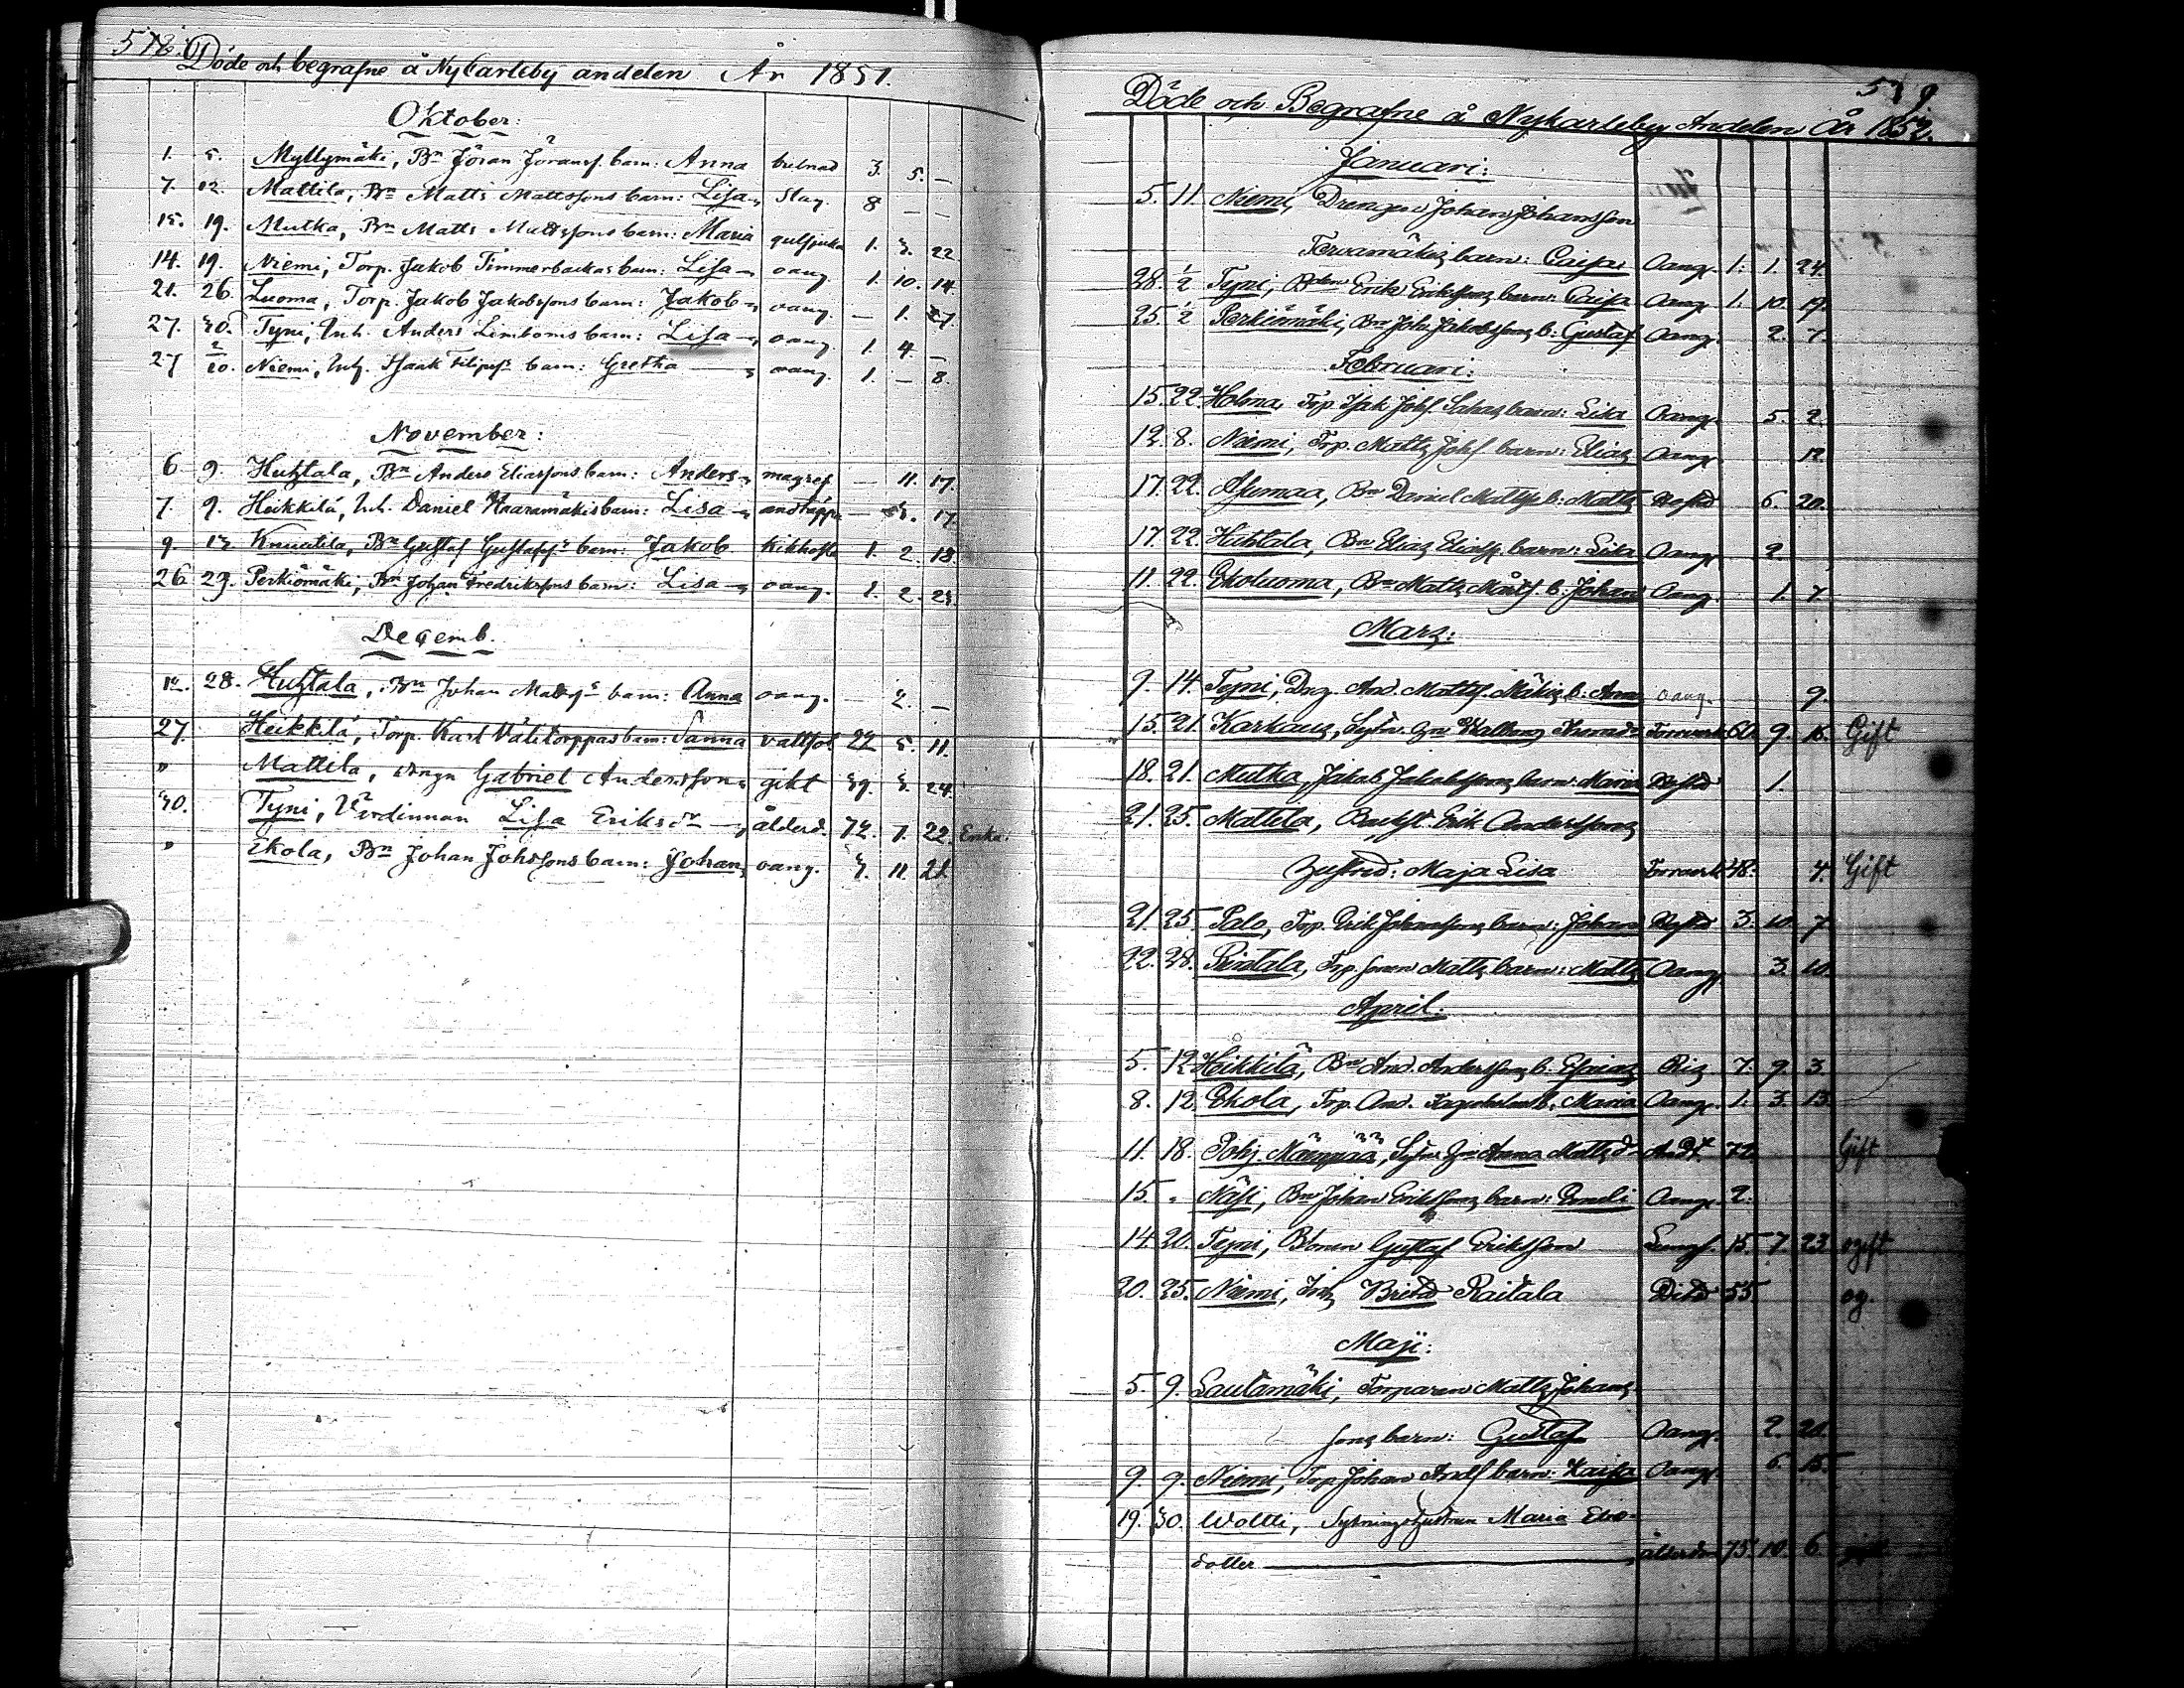 578.
Döde och begrafne å NyCarleby andelen År 1851.
Oktober:
1. 5. Myllymäki, Bn Jöran Jöransf. barn: Anna bulnad 3. 5. —
7. 12. Mattila, Bn Matts Mattssons barn: Lisa slag. 8 — —
15. 19. Mutka, Bn Matts Mattssons barn: Maria gulsjuka 1. 3. 22
14. 19. Niemi, Torp. Jakob Timmerbackas barn: Lisa oang. 1. 10. 14
21. 26. Luoma, Torp. Jakob Jakobssons barn: Jakob oang. — 1. 27.
27. 30. Tyni, Inh. Anders barn: Lisa oang. 1. 4. —
27 2/10. Niemi, Inh. Isaak barn: Gretha oang. 1. — 8.
November:
6 9. Huhtala, Bn Anders Eliassons barn: Anders magref — 11. 17.
7. 9. Heikkilä, Inh. Daniel Haaramäkis barn: Lisa andtäppa — 3. 17.
9. 13 Knuutila, Bn Gustaf Gustafss barn: Jakob kikhosta 1. 2. 18.
26 29. Perkiömäki, Bn Johan Fredrikssons barn: Lisa oang. 1. 2. 23.
Decemb.
12. 28. Huhtala, Bn Johan Matss barn: Anna oang. 2. —
27. Heikkilä, Torp. Karl Välitorppas barn: Sanna vattsot 22 5. 11.
" Mattila, drngn Gabriel Andersson gikt 39. 3. 24.
30. Tyni, Värdinnan Lisa Eriksdr ålderd. 72. 7. 22. Enka.
" Ekola, Bn Johan Johssons barn: Johan oang. 3. 11. 21.
579.
Döde och Begrafne å Nykarleby Andelen År 1852.
Januari:
5. 11. Niemi, Drengen Johan Johansson
Tervamäkis barn: Caisa Oang. 1. 1. 24.
28. 1/2 Tyni, Bden Erik Erikssons barn: Caisa Oang 1. 10. 19.
25. 1/2 Perkiömäki, Bn Joh. Jakobssons b: Gustaf Oang. 2. 7.
Februari:
15. 22. Holma, Torp Isak Johs. barn: Lisa Oang. 5. 2.
12. 8. Niemi, Torp. Matts Johs. barn: Elias Oang. 12.
17. 22. Asumaa, Bn Daniel Mattss. b: Matts 6. 20.
17. 22. Huhtala, Bn Elias Eliass. barn: Lisa Oang. 2.
11. 22. Ekoluoma, Bn Matts b. Johan Oang. 1. 7.
Mars:
9. 14. Tyni, Dng. And. Mattss. Mäkis b. Anna oang. 9.
15. 21. Karhaus, 60. 9. 16. Gift
18. 21. Mutka, Jakob Jakobssons barn: Maria 1.
21. 25. Mattila, Erik Anderssons
hustru: Maja Lisa 48. 4. Gift
21. 25. Palo, Torp. Erik Johanssons barn: Johan 3. 10. 7
22. 28. Rintala, Torp. sonen Matts barn: Matts Oang. 3. 10.
April.
5. 12. Heikkilä, Bn And. Anderssons b. Esaias Ris 7. 9. 3.
8. 12. Ekola, Torp. And. b. Maria Oang. 1. 3. 13.
11. 18. Pohj. Anna Mattsd. 72. Gift
15. " Näsi, Bn Johan Erikssons barn: Oang. 2.
14 20. Tyni, Gustaf Eriksson Lungs. 15. 7. 23. ogift
20. 25. Niemi, Inh Raitala Dito 55. og.
Maji:
5. 9. Lautamäki, Torparen Matts Johans
sons barn: Gustaf Oang. 2. 20.
9. 9. Niemi, Torp. Johan Ands barn: Kaisa Oang. 6. 15.
19. 30. Woltti, Sytningshustrun Maria Elias-
dotter ålderdom 75. 10. 6.